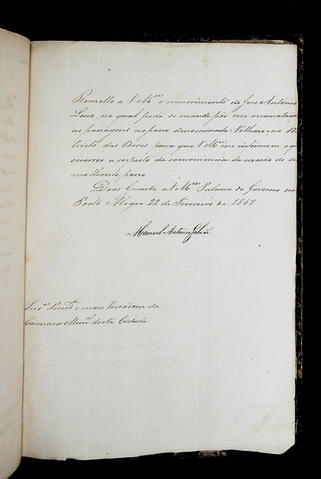 Remetto a V Mces o requerimento de José Antonio
no qual pede se mande pôr em arrematação
as passagens no passo denominado Velhaco no
tricto das Dores para que V Mces informem o que
occorrer a respeito da conveniencia da
me
Deos Guarde a V Mces Palacio do Governo em
Porto Alegre 22 de Fevereiro de 1847
Manoel Antonio Galvão
Snrs Presidte e mais Vereadores da
Camara Munal desta Cidade